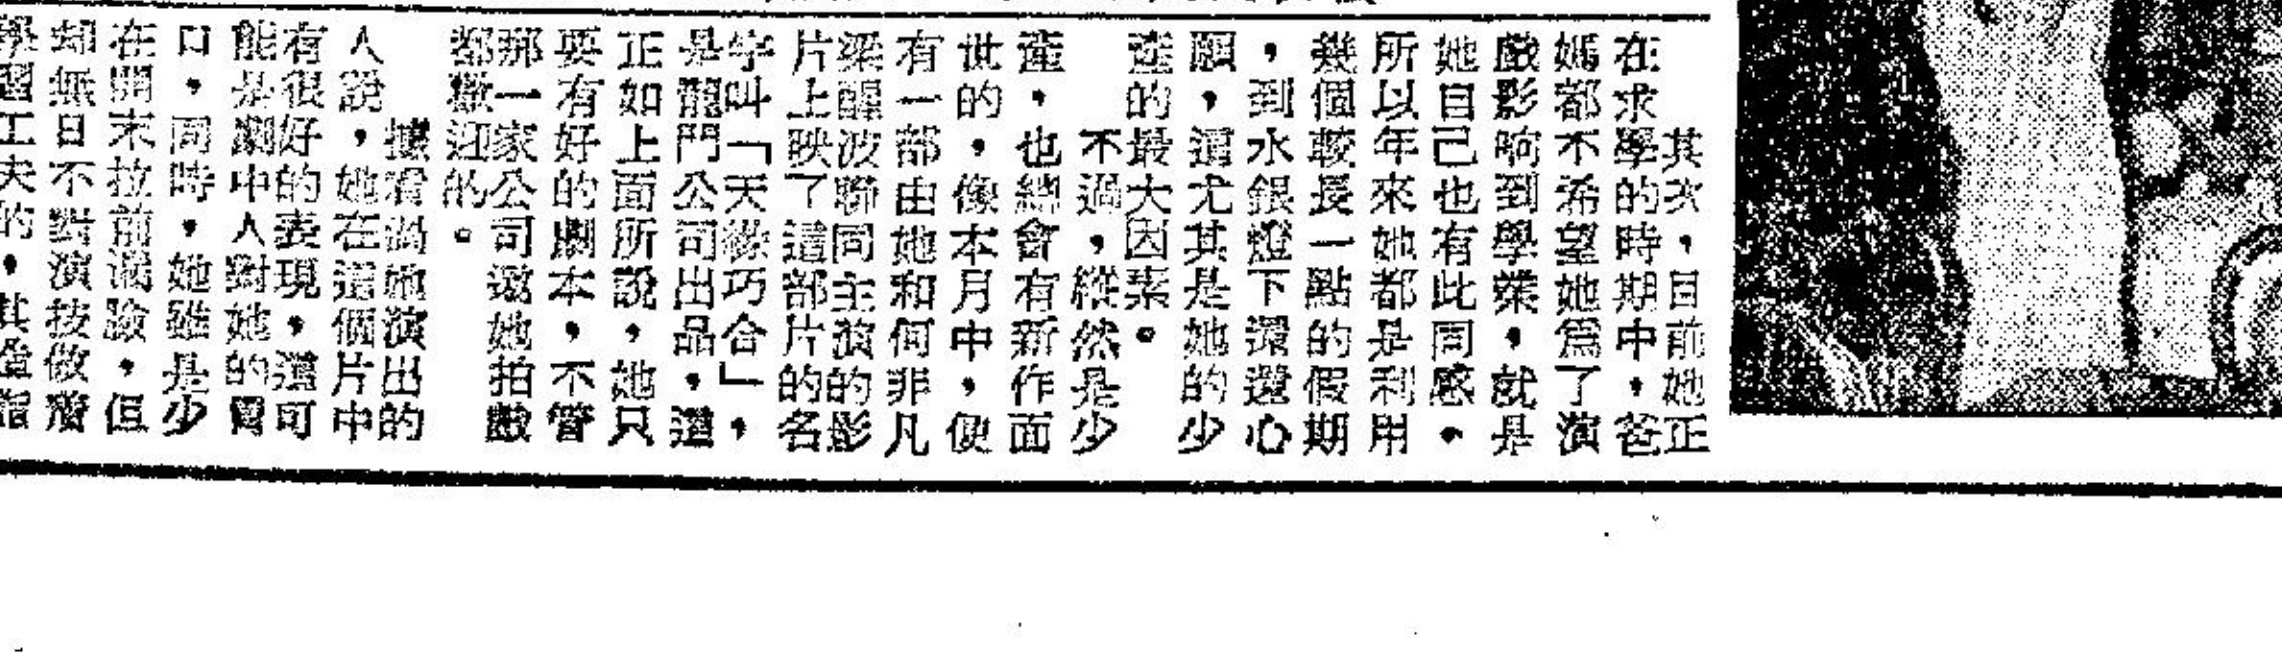 其次，目前她正
在求學的時期中，爸
媽都不希望她爲了演
戲影响到學業，就是
她自己也有此同感。
所以年來她都是利用
幾個較長一點的假期
，到水銀燈下還還心
願，這尤其是她的少
產的最大因素。
不過，縱然是少
產，也總會有新作面
世的，像本月中，便
有一部由她和何非凡
梁醒波聯同主演的影
片上映了這部片的名
字叫「天緣巧合」，
是龍門公司出品，這
正如上面所說，她只
要有好的劇本，不管
那一家公司邀她拍戲
都歡迎的。
據看過她演出的
人說，她在這個片中
有很好的表現，還可
能是劇中人對她的胃
口，同時，她雖是少
在開末拉前試驗，但
却無日不對演技做
學習工夫的，其